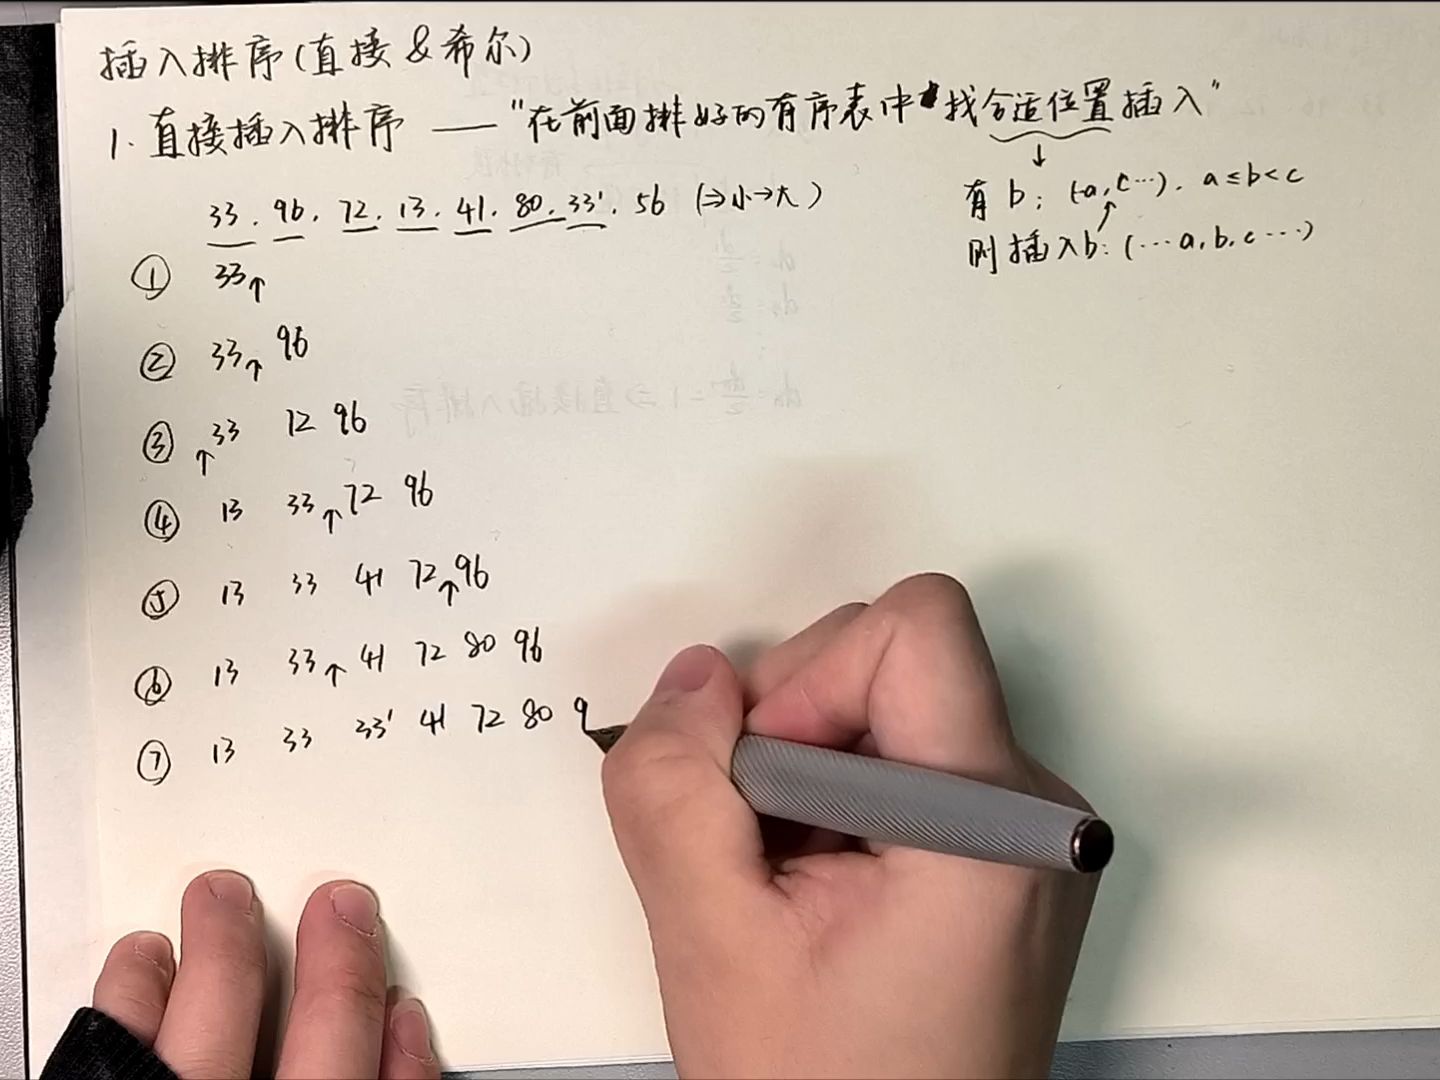 插入排序(直接 & 希尔)
1. 直接插入排序 —— "在前面排好的有序表中找合适位置插入"
↓
有 b: (…a, c…). a ≤ b < c
则插入b: (…a, b, c …)
33. 96. 72. 13. 41. 80. 33'. 56 (⇒小→大)
① 33↑
② 33↑ 96
③ ↑33 72 96
④ 13 33↑72 96
⑤ 13 33 41 72↑96
⑥ 13 33↑ 41 72 80 96
⑦ 13 33 33' 41 72 80 9